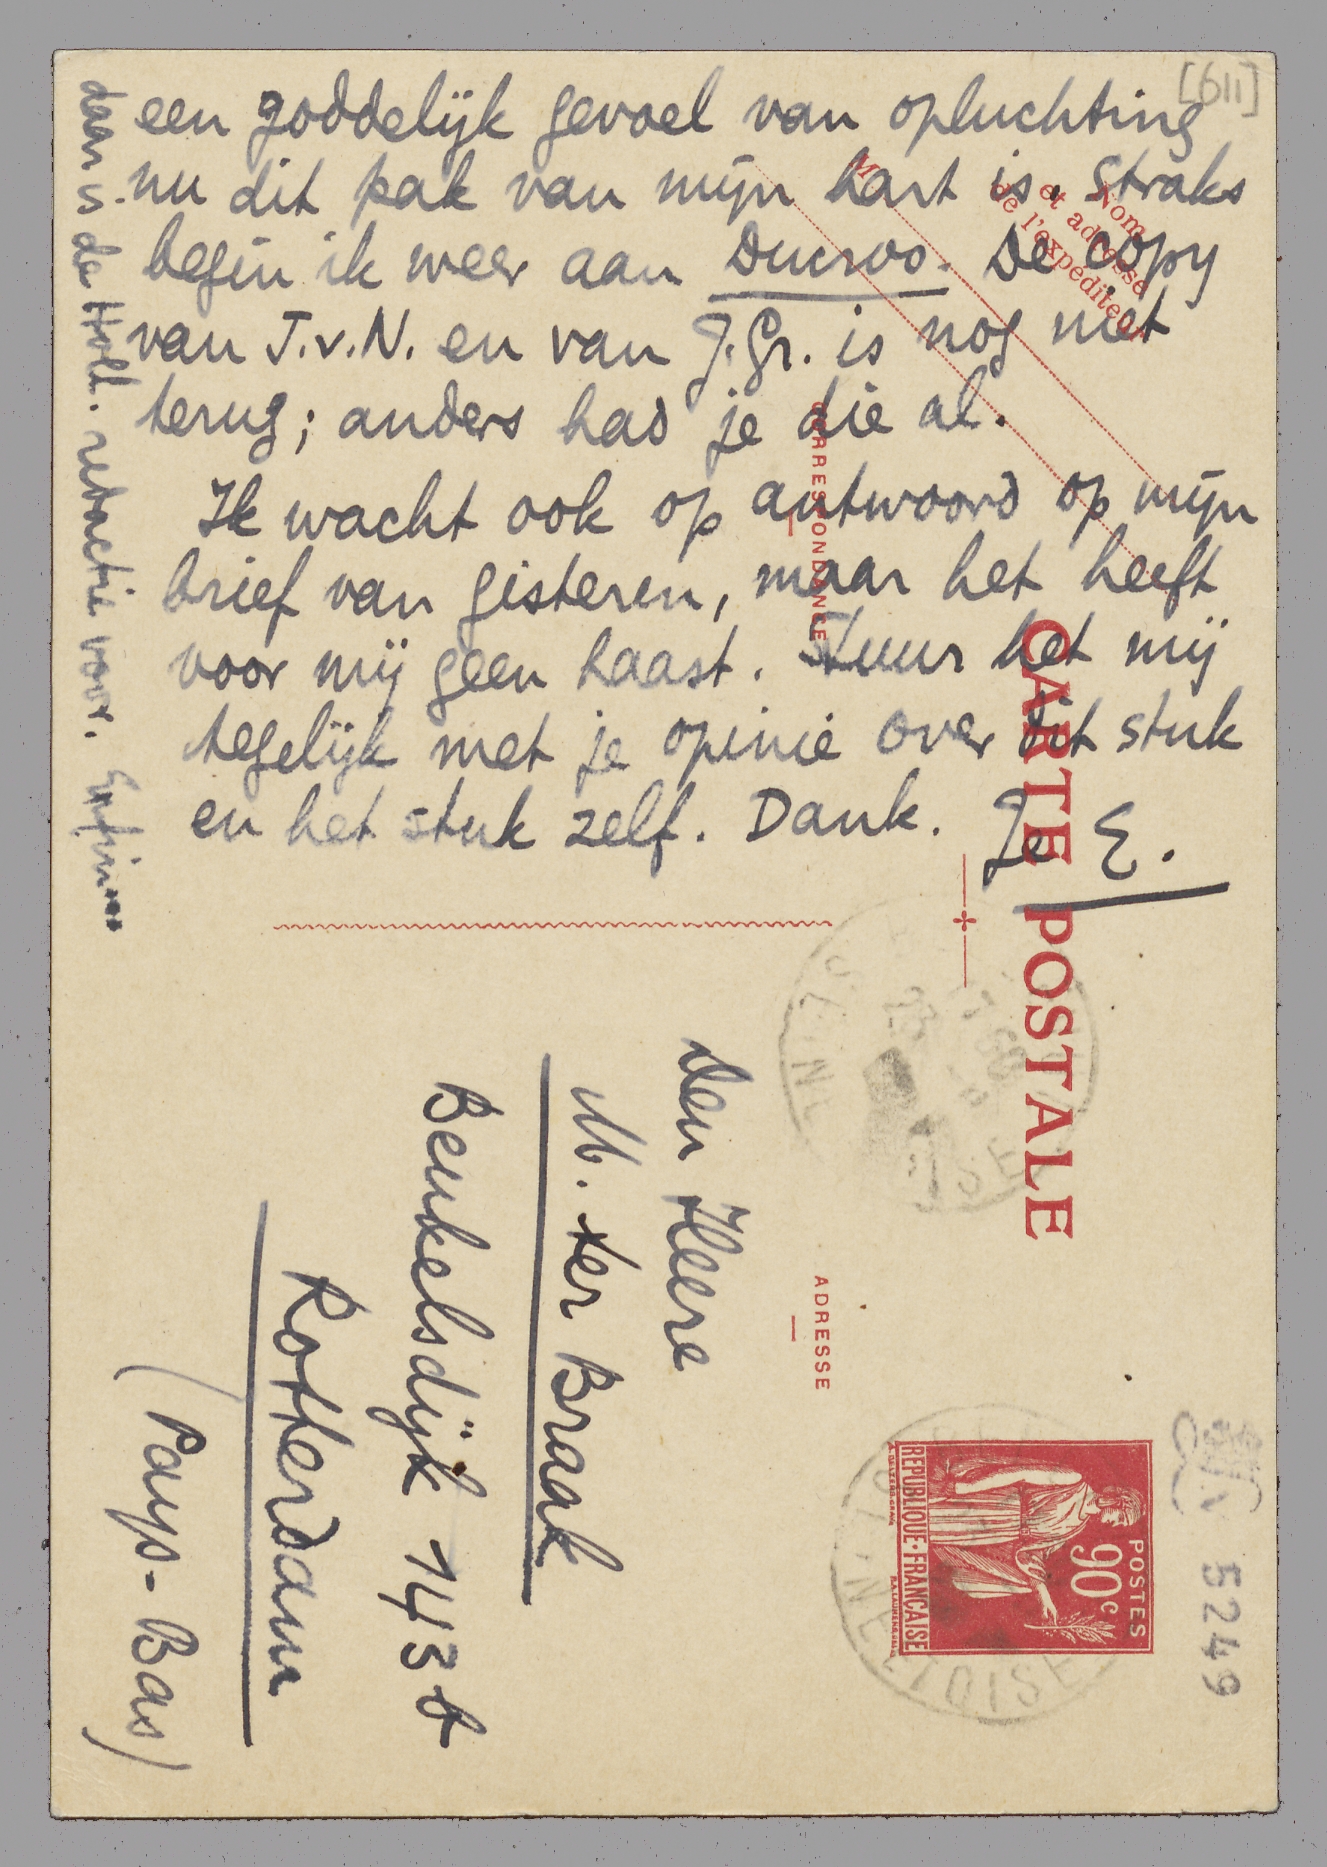 [611]
een goddelijk gevoel van opluchting
nu dit pak van mijn hart is. Straks
begin ik weer aan Ducroo. De copy
van J.v.N. en van J.Gr. is nog niet
terug; anders had je die al.
Ik wacht ook op antwoord op mijn
brief van gisteren, maar het heeft
voor mij geen haast. Stuur het mij
tegelijk met je opinie over dit stuk
en het stuk zelf. Dank. Je E.
daar is de Holl. redactie voor. Enfin
Nom
et adresse
de l'expéditeur
CORRESPONDANCE
CARTE POSTALE
ADRESSE
Den Heere
M. ter Braak
Beukelsdijk 143 b
Rotterdam
(Pays-Bas)
POSTES
90c
REPUBLIQUE·FRANÇAISE
5249